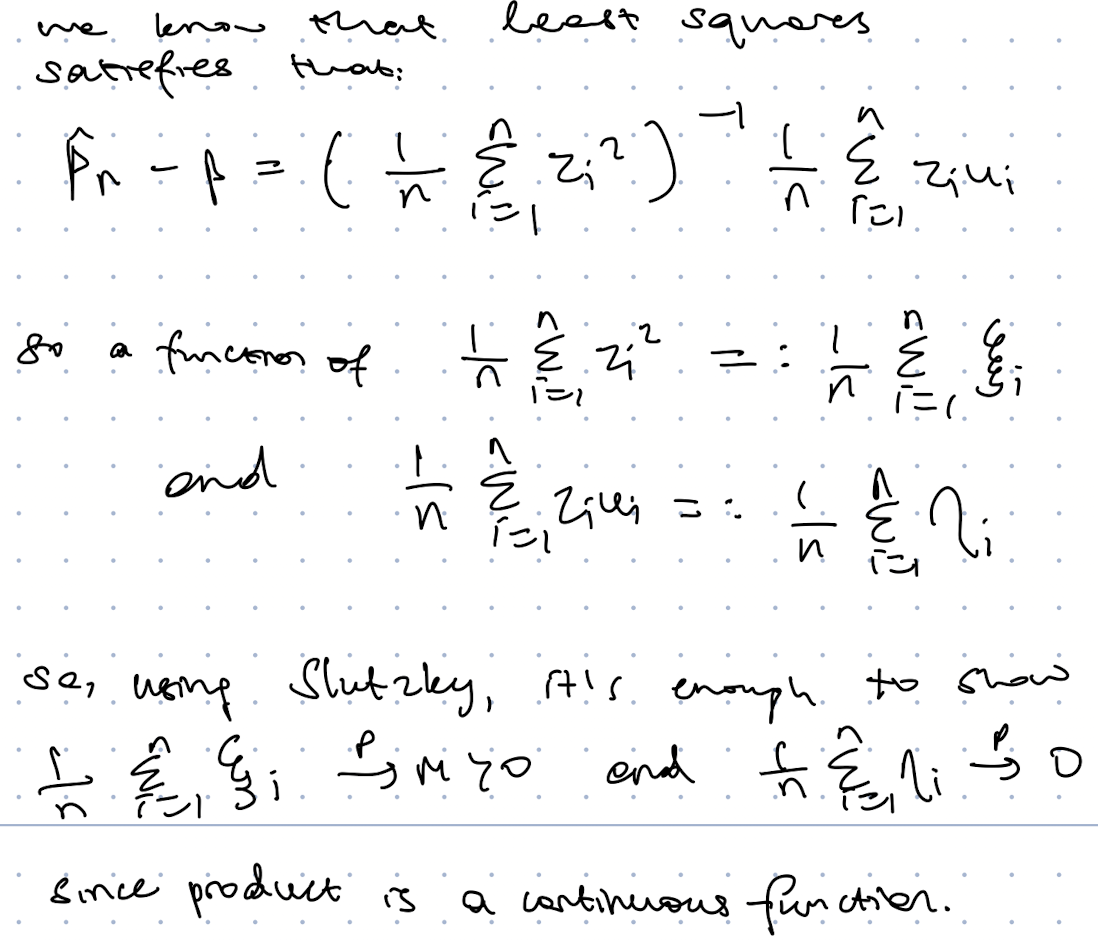 we know that least squares
satisfies that:
β̂n - β = ( 1/n Σ_{i=1}^{n} zi² )^{-1} 1/n Σ_{i=1}^{n} zi ui
so a function of 1/n Σ_{i=1}^{n} zi² =: 1/n Σ_{i=1}^{n} ξi
and 1/n Σ_{i=1}^{n} zi ui =: 1/n Σ_{i=1}^{n} ηi
so, using Slutzky, it's enough to show
1/n Σ_{i=1}^{n} ξi →p M > 0 and 1/n Σ_{i=1}^{n} ηi →p 0
since product is a continuous function.